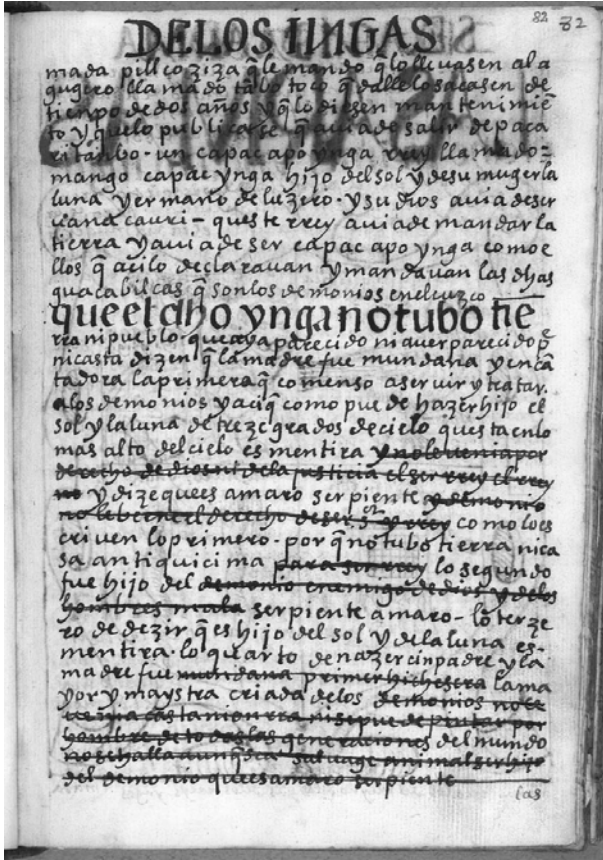 82 82
DE LOS INGAS
mada pillco ziza q̄ le mando q̄ lo lleuasen al a
gugero llamado tanbo toco q̄ dalle lo sacasen de
tienpo de dos años y q̄ lo diesen mantenimiē
to y que lo publicase q̄ auia de salir de paca
ritanbo - un capac apo ynga rrey llamado
mango capac ynga hijo del sol y de su muger la
luna y ermano de luzero - y su dios auia de ser
uanacauri - queste rrey auia de mandar la
tierra y auia de ser capac apo ynga como e
llos q̄ acilo declarauan y mandauan las dhas
uaca bilcas q̄ son los demonios en el cuzco
que el dho ynga no tubo tie
rra ni pueblo que aya parecido ni auer parecido p̄
ni casta dizen q̄ la madre fue mundana y encā
tadora la primera q̄ comenso a seruir y tratar
a los demonios y aciq̄ como puede hazer hijo el
sol y la luna de treze grados de cielo questa en lo
mas alto del cielo es mentira y no le uenia por
derecho de dios ni de la justicia el ser rrey el rrey
no y dize que es amaro serpiente y demonio
no le biene el derecho de ser s.or y rrey como lo es
criuen lo primero - por q̄ no tubo tierra ni ca
sa antiquicima para ser rrey lo segundo
fue hijo del demonio enemigo de dios y de los
hombres mala serpiente amaro - lo terze
ro de dezir q̄ es hijo del sol y de la luna es
mentira - lo quarto de nazer cin padre y la
madre fue mundana primer hichesera la ma
yor y maystra criada de los demonios no le
uenia casta ni onrra ni se puede pintar por
hombre de todas las generaciones del mundo
no se halla aunq̄ sea saluage animal ser hijo
del demonio que es amaro serpiente
las